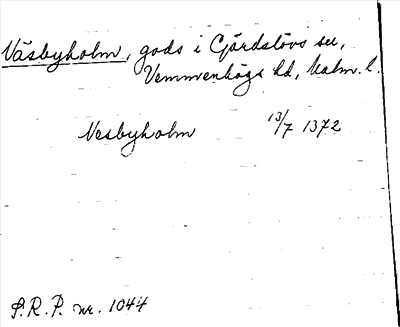 Väsbyholm, gods i Gärdslövs sn,
Vemmenhögs hd, Malm. l.
Nesbyholm 13/7 1372
S.R.P. nr. 1044